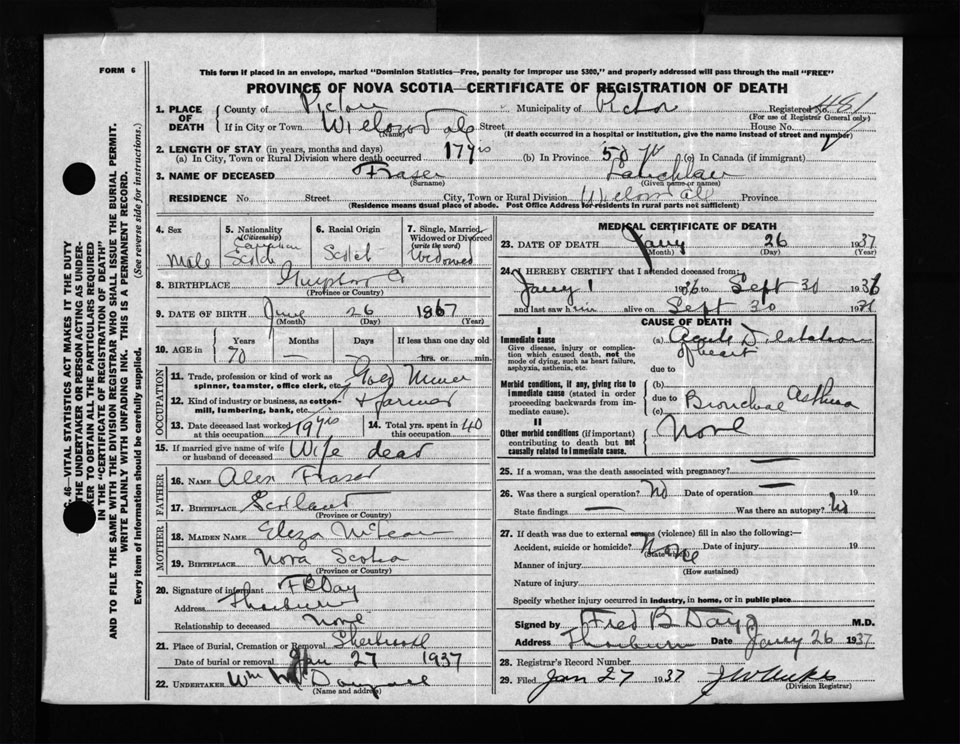 FORM 6
This form if placed in an envelope, marked "Dominion Statistics—Free, penalty for improper use $300," and properly addressed will pass through the mail "FREE"
PROVINCE OF NOVA SCOTIA—CERTIFICATE OF REGISTRATION OF DEATH
1. PLACE OF DEATH
County of Pictou Municipality of Pictou Registered No. 481
(For use of Registrar General only)
If in City or Town Willowdale Street House No.
(Name) (If death occurred in a hospital or institution, give the name instead of street and number)
2. LENGTH OF STAY (in years, months and days)
(a) In City, Town or Rural Division where death occurred 17 yrs (b) In Province 50 yr (c) In Canada (if immigrant)
3. NAME OF DECEASED Fraser Lauchlan
(Surname) (Given name or names)
RESIDENCE No. Street City, Town or Rural Division Willowdale Province
(Residence means usual place of abode. Post Office Address for residents in rural parts not sufficient)
4. Sex Male
5. Nationality (Citizenship) Canadian Scotch
6. Racial Origin Scotch
7. Single, Married, Widowed or Divorced (write the word) Widowed
8. BIRTHPLACE
(Province or Country)
9. DATE OF BIRTH June 26 1867
(Month) (Day) (Year)
10. AGE in Years Months Days If less than one day old
70 — — hrs. or min.
OCCUPATION
11. Trade, profession or kind of work as spinner, teamster, office clerk, etc. Gold Miner
12. Kind of industry or business, as cotton-mill, lumbering, bank, etc. & farmer
13. Date deceased last worked at this occupation 19 yrs 14. Total yrs. spent in this occupation 40
15. If married give name of wife or husband of deceased Wife dead
FATHER
16. NAME Alex Fraser
17. BIRTHPLACE Scotland
(Province or Country)
MOTHER
18. MAIDEN NAME Eliza McLean
19. BIRTHPLACE Nova Scotia
(Province or Country)
20. Signature of informant F B Day
Address Thorburn
Relationship to deceased None
21. Place of Burial, Cremation or Removal
Date of burial or removal Jan 27 1937
22. UNDERTAKER Wm
(Name and address)
MEDICAL CERTIFICATE OF DEATH
23. DATE OF DEATH Jany 26 1937
(Month) (Day) (Year)
24. I HEREBY CERTIFY that I attended deceased from:
Jany 1 1936 to Sept 30 1936
and last saw him alive on Sept 30 19
CAUSE OF DEATH
I
Immediate cause
Give disease, injury or complication which caused death, not the mode of dying, such as heart failure, asphyxia, asthenia, etc.
(a) Acute Dilatation of heart
due to
Morbid conditions, if any, giving rise to immediate cause (stated in order proceeding backwards from immediate cause).
(b)
due to Bronchial Asthma
(c)
II
Other morbid conditions (if important) contributing to death but not causally related to immediate cause.
None
25. If a woman, was the death associated with pregnancy? —
26. Was there a surgical operation? No Date of operation — 19
State findings — Was there an autopsy? No
27. If death was due to external causes (violence) fill in also the following:—
Accident, suicide or homicide? None Date of injury 19
(State which)
Manner of injury
(How sustained)
Nature of injury
Specify whether injury occurred in industry, in home, or in public place
Signed by Fred B Day M.D.
Address Thorburn Date Jany 26 1937
28. Registrar's Record Number
29. Filed Jan 27 1937
(Division Registrar)
C. 46—VITAL STATISTICS ACT MAKES IT THE DUTY
THE UNDERTAKER OR PERSON ACTING AS UNDER-
KER TO OBTAIN ALL THE PARTICULARS REQUIRED
IN THE "CERTIFICATE OF REGISTRATION OF DEATH"
AND TO FILE THE SAME WITH THE DIVISION REGISTRAR WHO SHALL ISSUE THE BURIAL PERMIT.
WRITE PLAINLY WITH UNFADING INK. THIS IS A PERMANENT RECORD.
Every item of information should be carefully supplied. (See reverse side for instructions.)